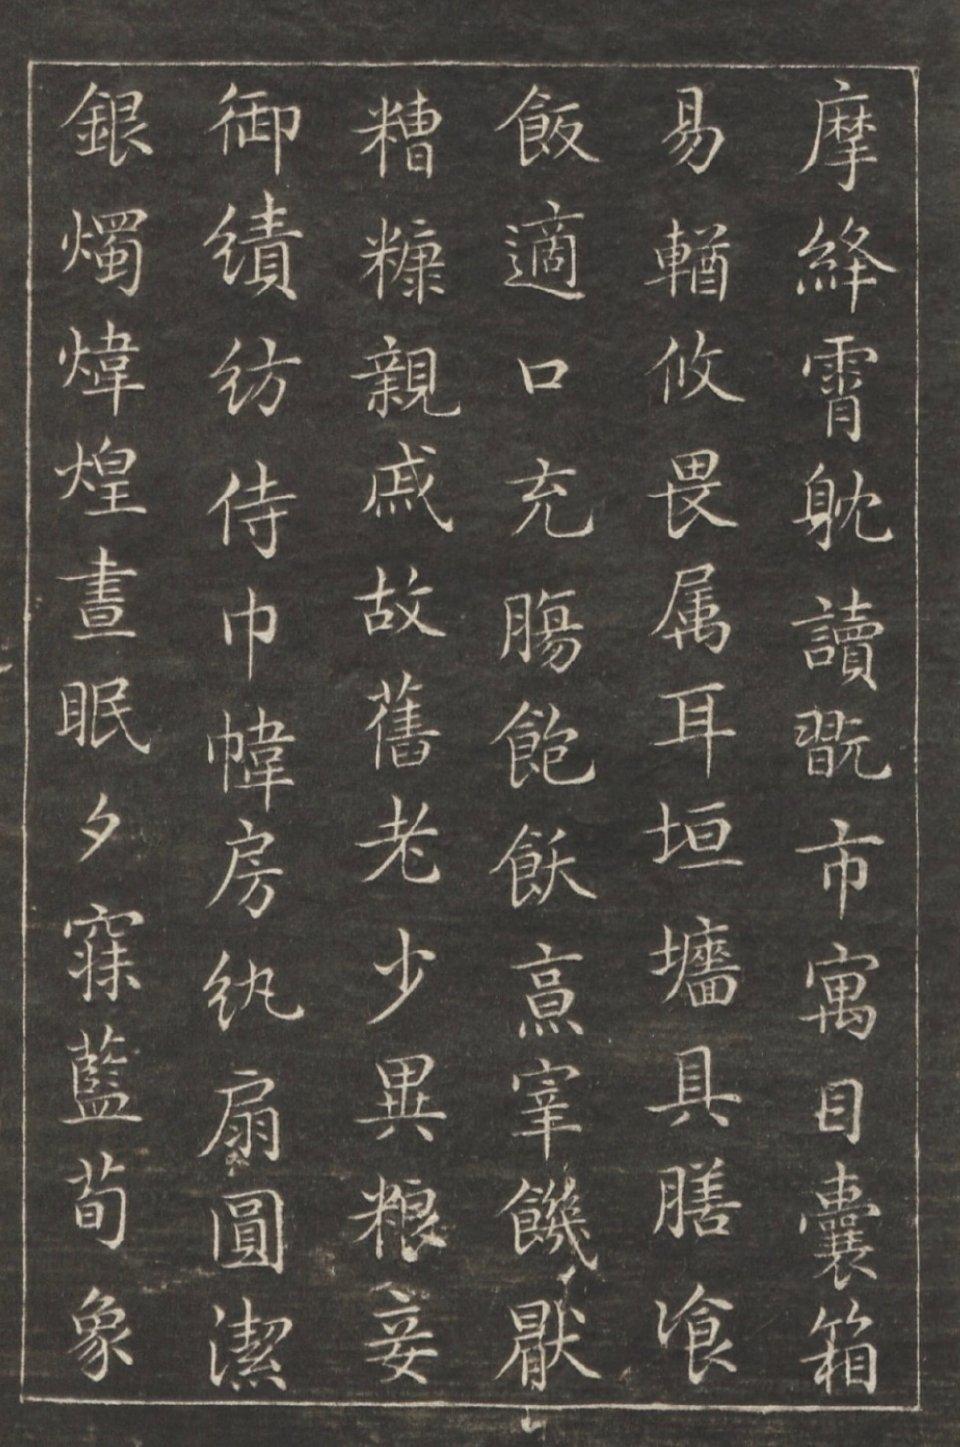 摩絳霄躭讀翫市寓目囊箱
易輶攸畏属耳垣墻具膳飡
飯適口充腸飽飫烹宰饑厭
糟糠親戚故舊老少異粮妾
御績紡侍巾幃房紈扇圓潔
銀燭煒煌晝眠夕寐藍荀象